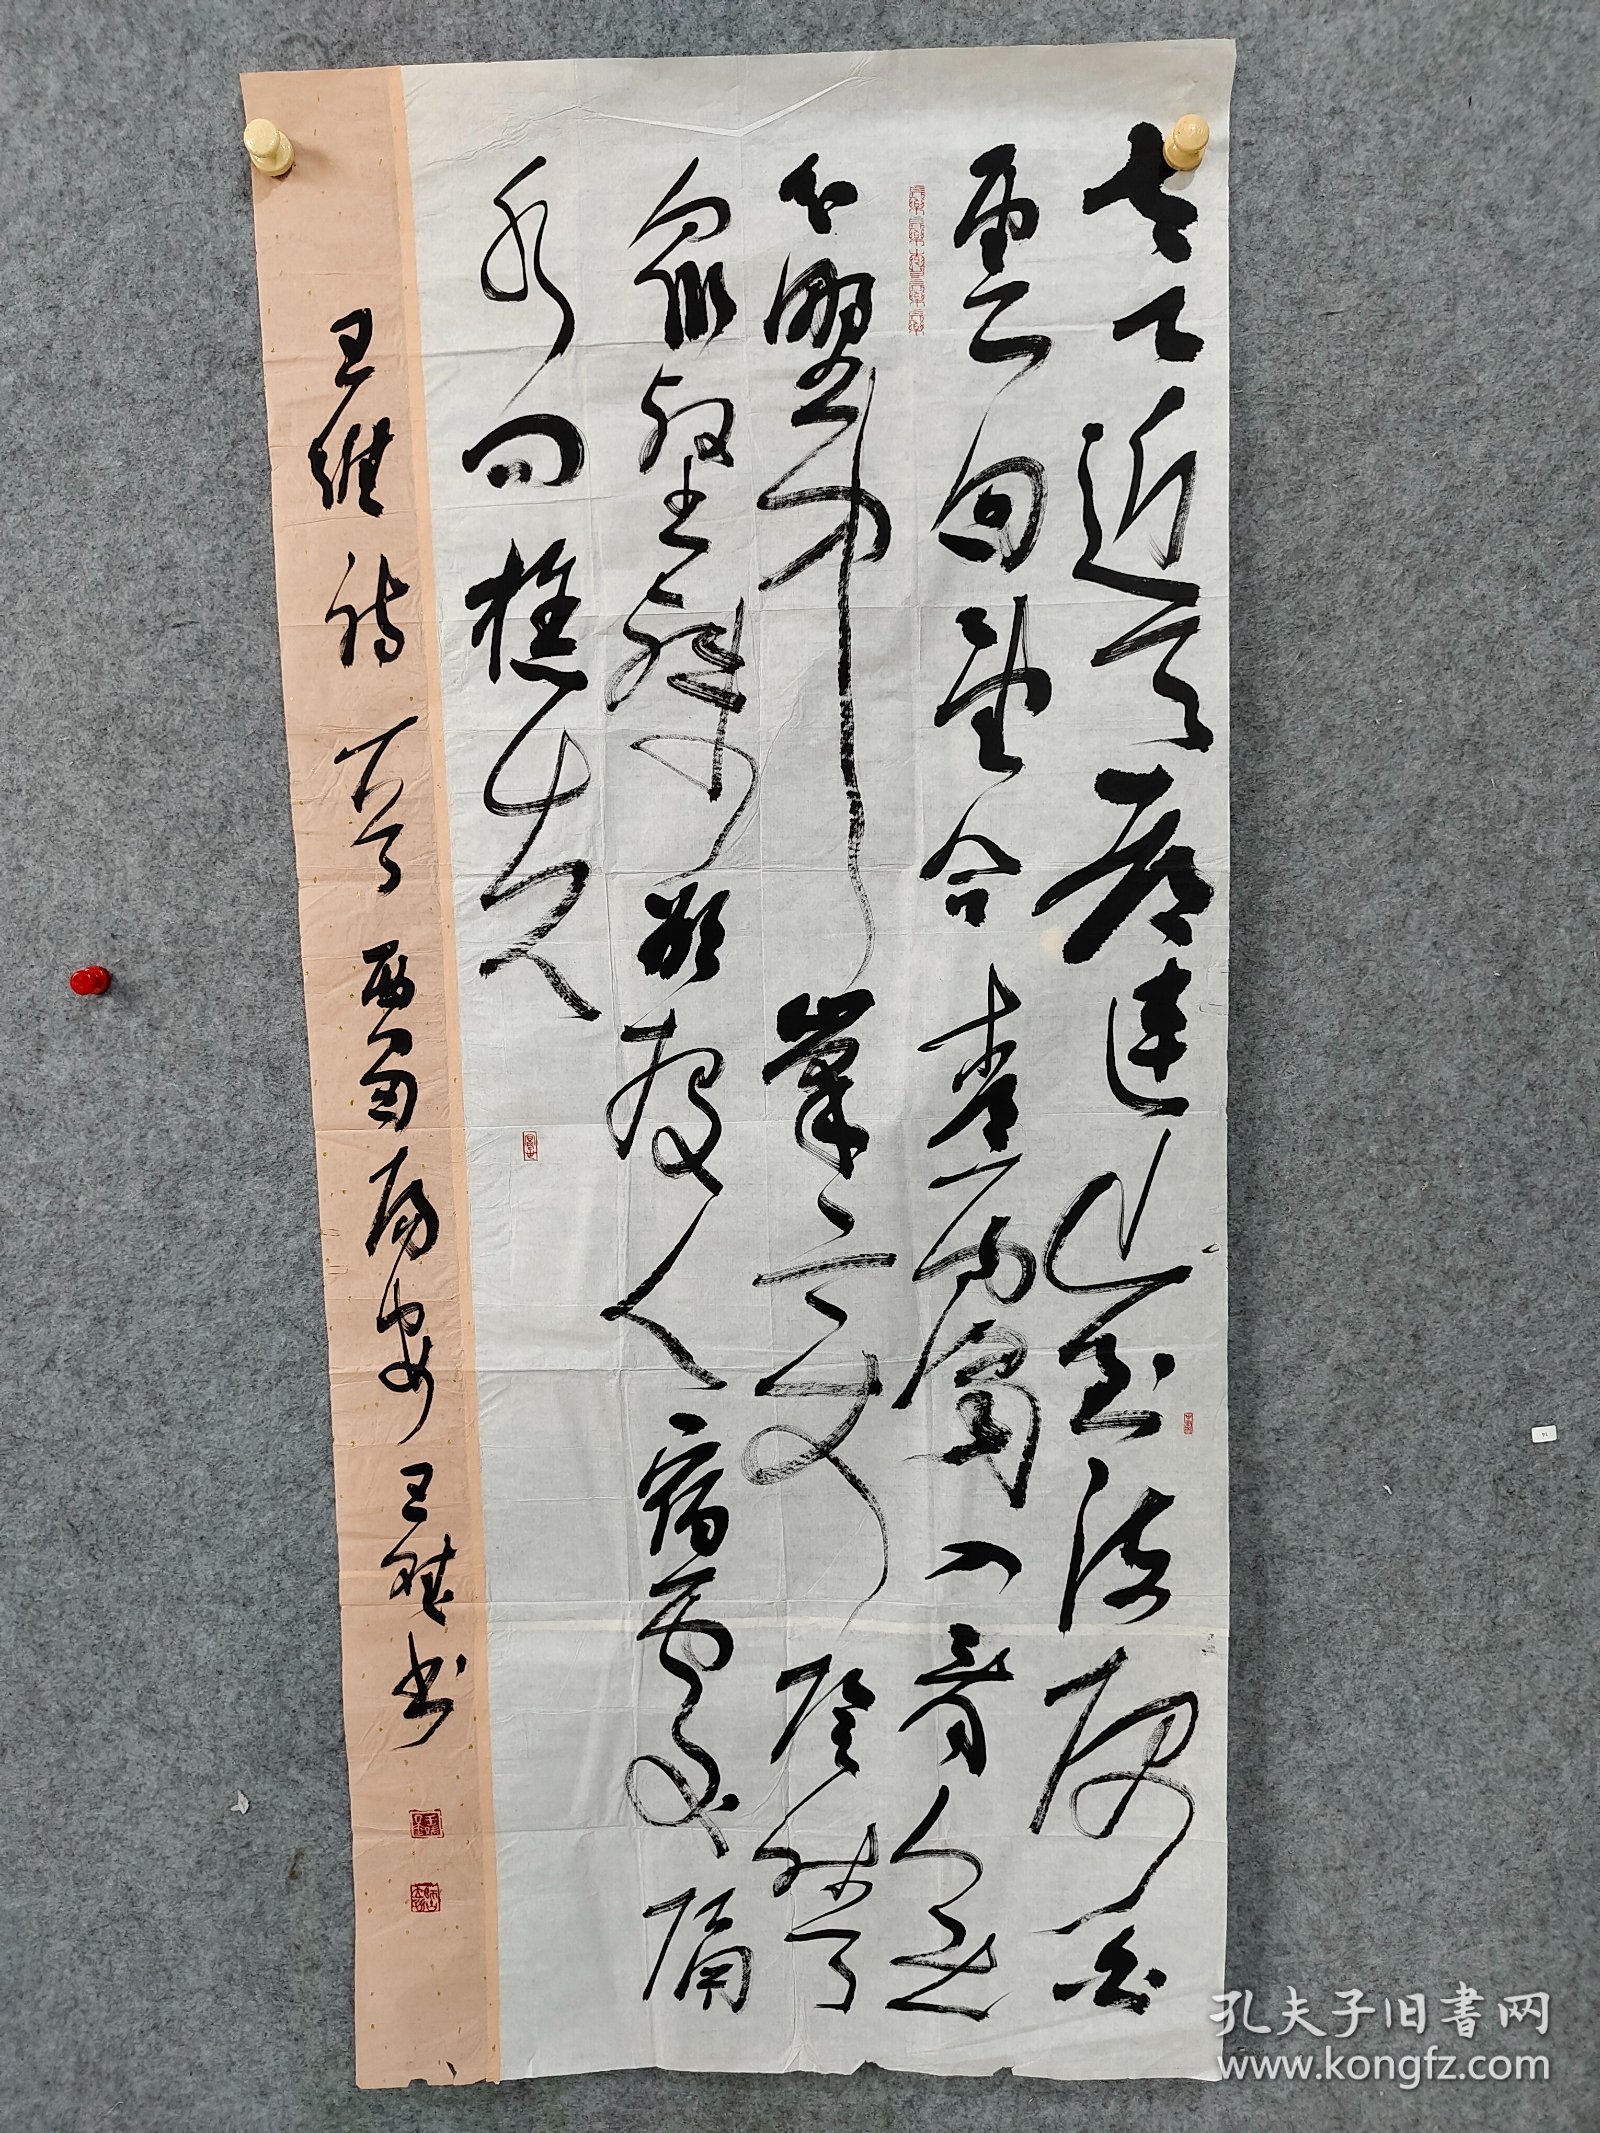 太乙近天都连山到海隅白
云回望合青霭入看无
分野中峰变阴晴
众壑殊欲投人宿处隔
水问樵夫
王维诗一首 西蜀 王 书
孔夫子旧书网
www.kongfz.com